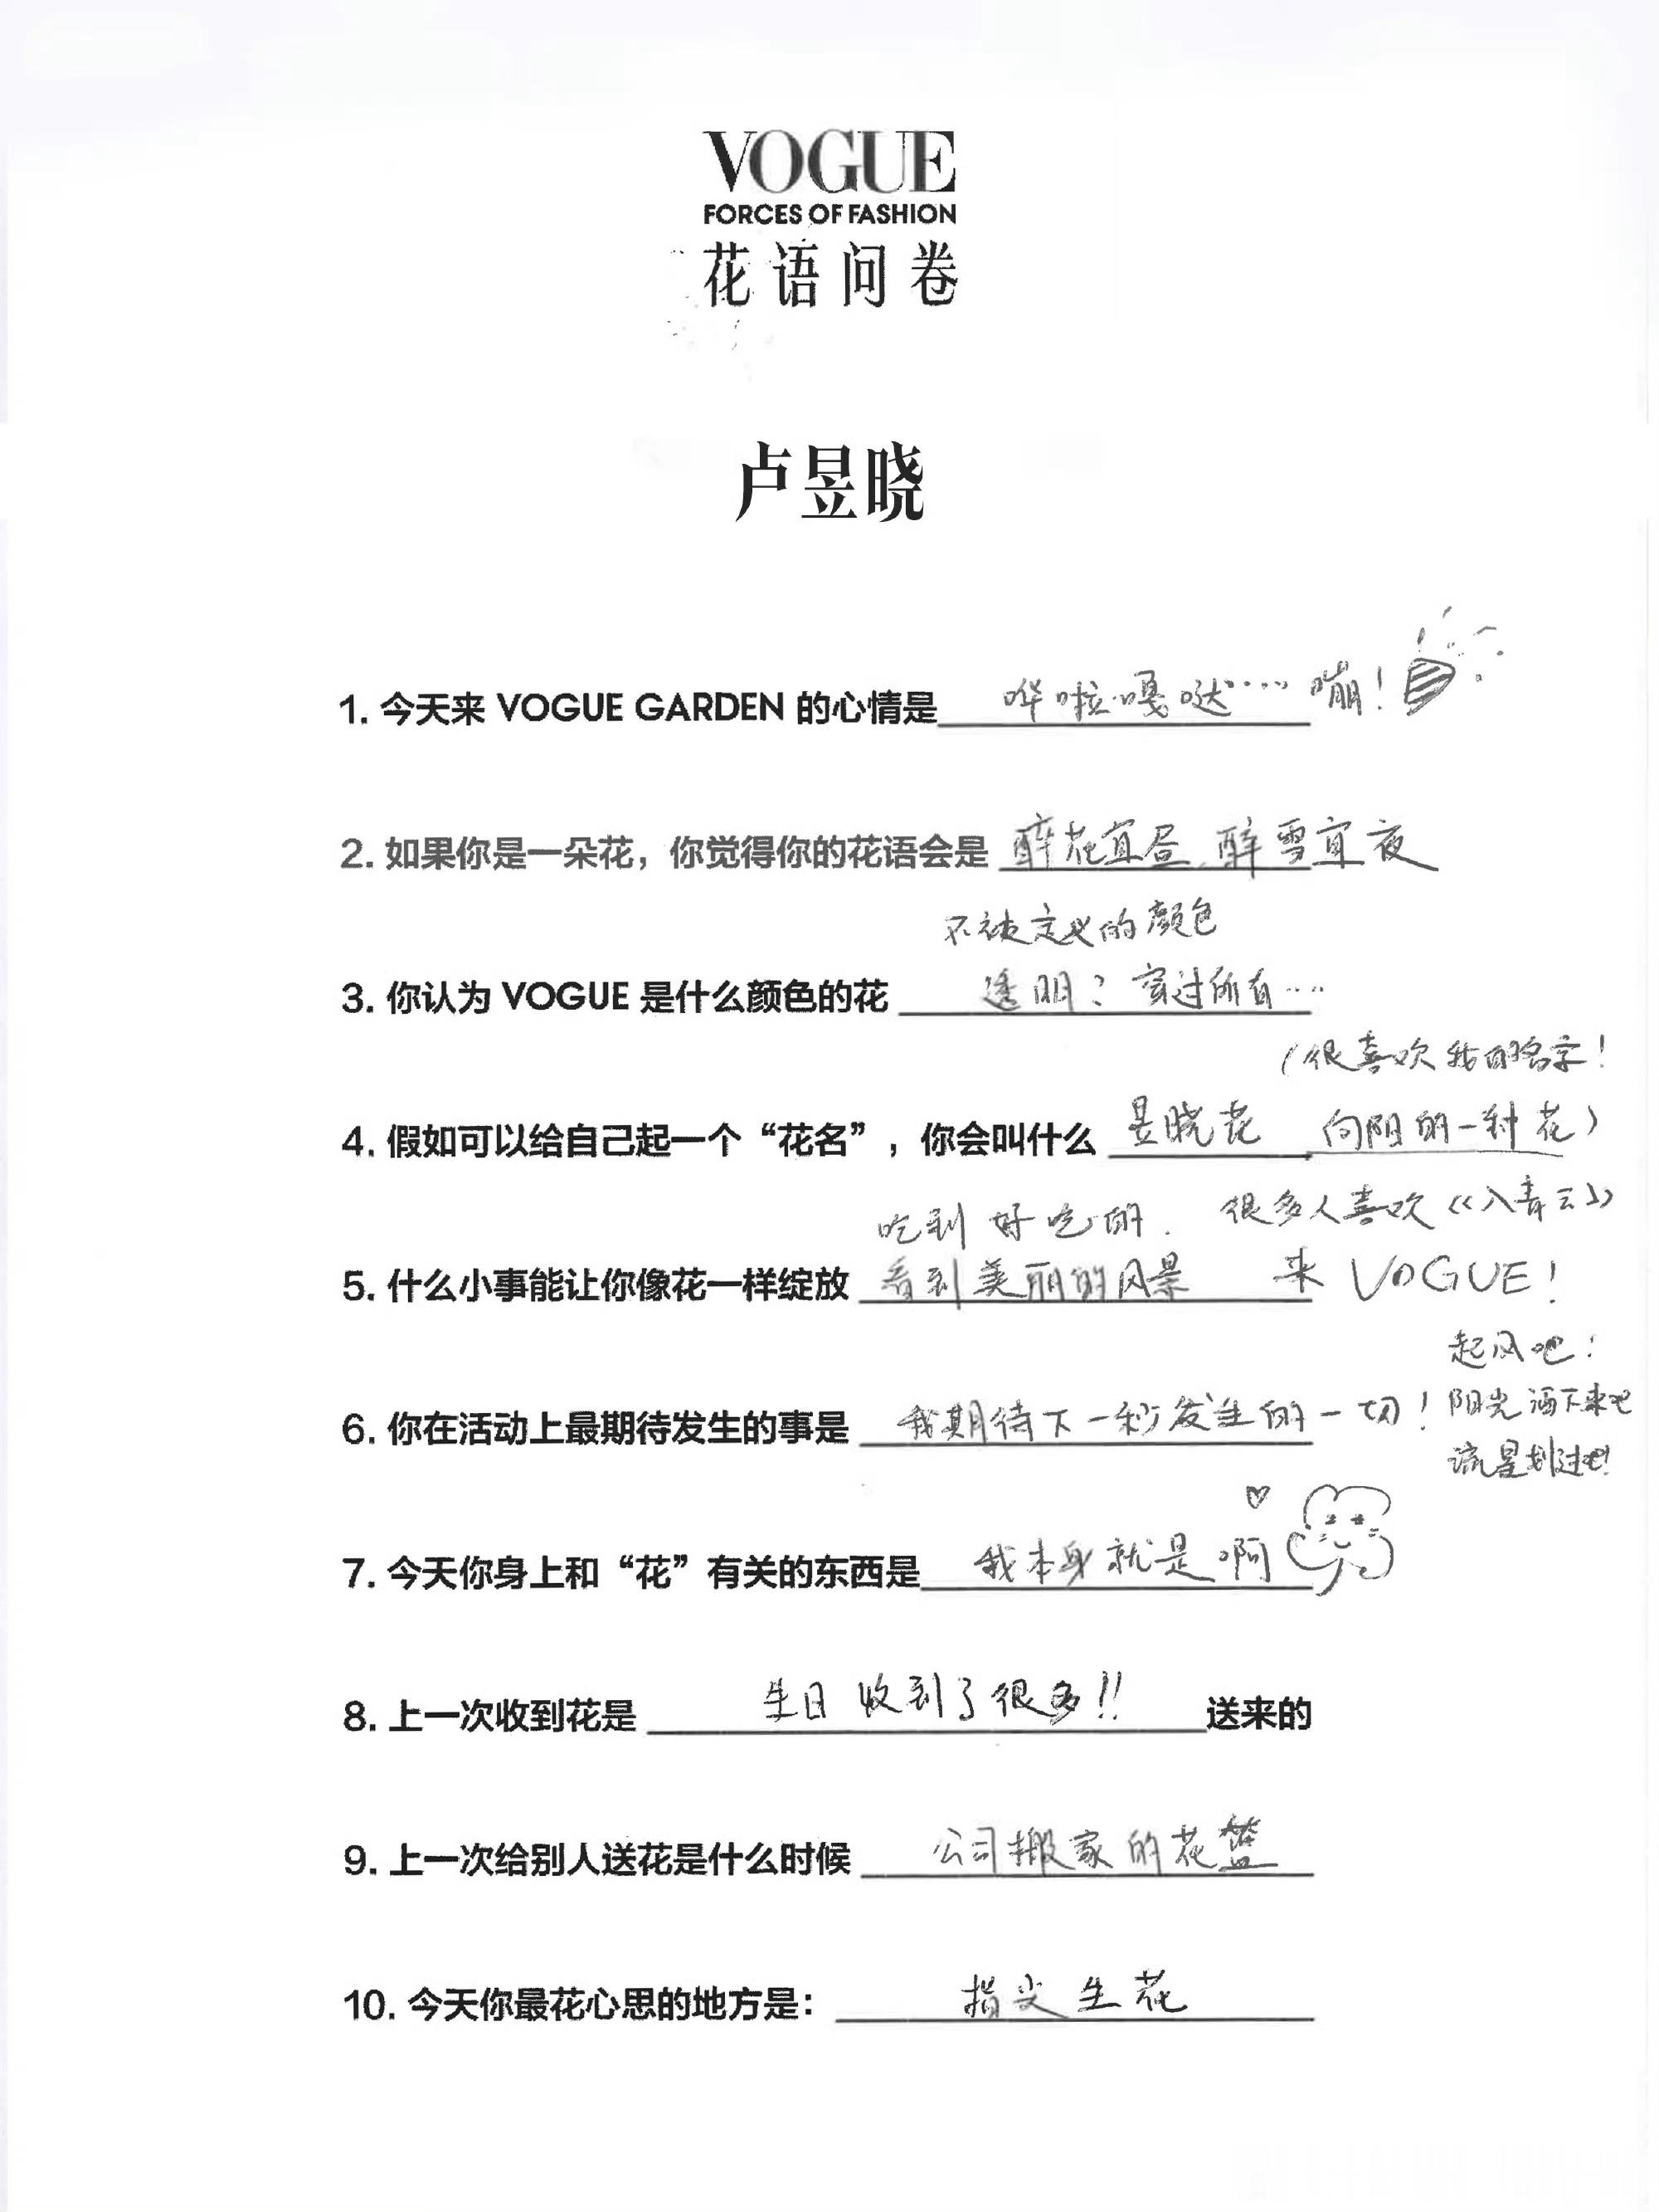 VOGUE
FORCES OF FASHION
花语问卷
卢昱晓
1. 今天来 VOGUE GARDEN 的心情是 哗啦嘎哒…… 嘣!
2. 如果你是一朵花，你觉得你的花语会是 醉花宜昼、醉雪宜夜
不被定义的颜色
3. 你认为 VOGUE 是什么颜色的花 透明? 穿过所有…
(很喜欢我的名字!
4. 假如可以给自己起一个“花名”，你会叫什么 昱晓花 向阳的一种花)
吃到好吃的. 很多人喜欢《入青云》
5. 什么小事能让你像花一样绽放 看到美丽的风景 来 VOGUE!
起风吧!
6. 你在活动上最期待发生的事是 我期待下一秒发生的一切! 阳光洒下来吧
流星划过吧!
7. 今天你身上和“花”有关的东西是 我本身就是啊
8. 上一次收到花是 生日收到了很多!! 送来的
9. 上一次给别人送花是什么时候 公司搬家的花篮
10. 今天你最花心思的地方是: 指尖生花